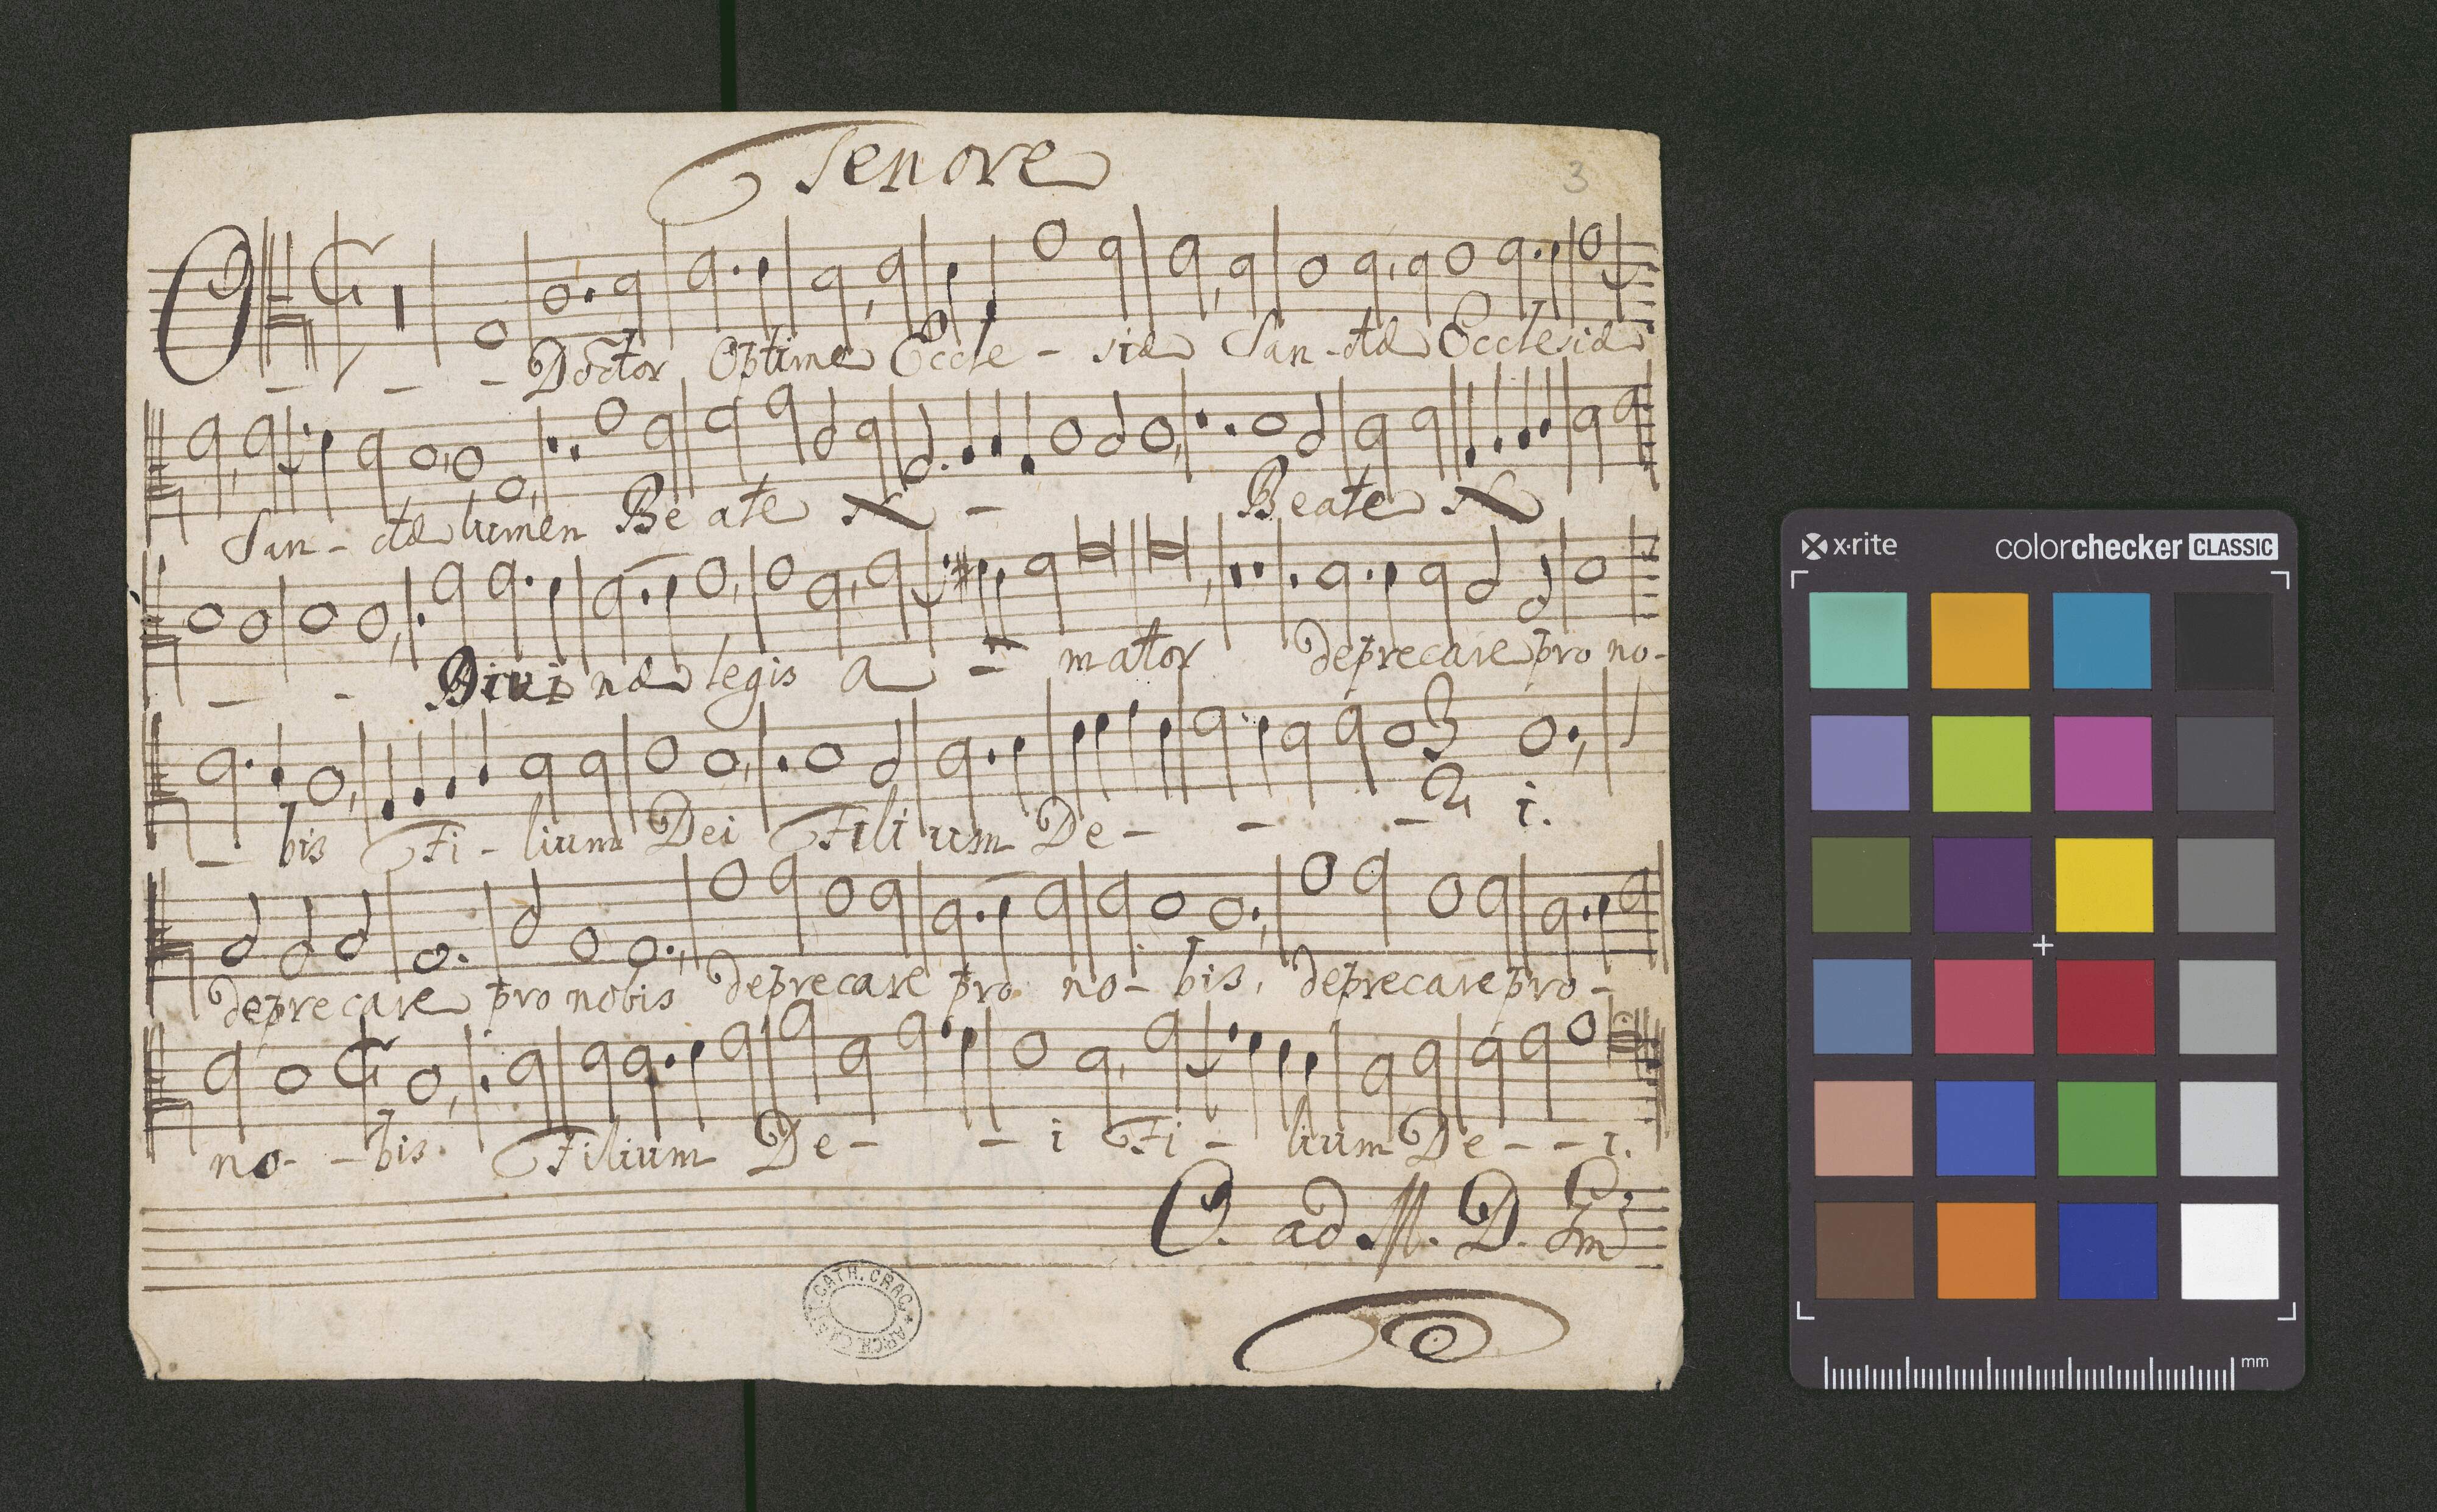 Tenore
3
O - - - Doctor Optime Eccle - siæ San - ctæ Ecclesiæ
San - ctæ lumen Be ate N - Beate N
- - Divi næ legis a - - mator deprecare pro no -
- bis Fi - lium Dei Fili um De - - - i.
3
2
deprecare pro nobis deprecare pro no - bis, deprecare pro -
no - - bis. Filium De - - i Fi - lium De - - i.
O. ad M. D.
ARCH. CATH. CRAC.
x·rite colorchecker CLASSIC
mm